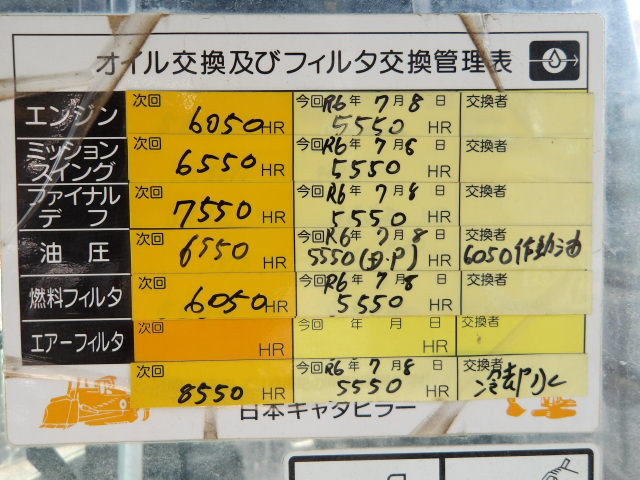 オイル交換及びフィルタ交換管理表
エンジン 次回 6050HR 今回 R6年 7月 8日 5550 HR 交換者
ミッション スイング 次回 6550 HR 今回 R6年 7月 8日 5550 HR 交換者
ファイナル デフ 次回 7550 HR 今回 R6年 7月 8日 5550 HR 交換者
油圧 次回 6550 HR 今回 R6年 7月 8日 5550 HR 交換者 6050作動油
燃料フィルタ 次回 6050 HR 今回 R6年 7月 8日 5550 HR 交換者
エアーフィルタ 次回 HR 今回 年 月 日 HR 交換者
次回 8550 HR 今回 R6年 7月 8日 5550 HR 交換者 冷却水
日本キャタピラー